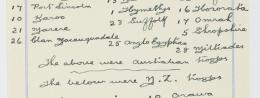 17 Port Lincoln 1 Hymettus 16 Hororata
10 Karoo 23 Suffolk 17 Omrah
21 Marere 5 Shropshire
26 Clan Macorquodale 25 Anglo Egyptian 28 Miltiades
The above were Australian Troops
The below were N.Z. Troops
Orawa